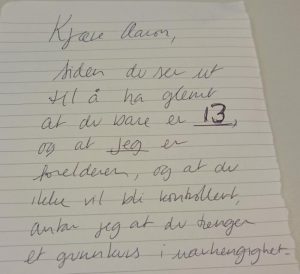 Kjære Aaron,
siden du ser ut
til å ha glemt
at du bare er 13,
og at jeg er
forelderen, og at du
ikke vil bli kontrollert,
antar jeg at du trenger
et grunnkurs i uavhengighet.